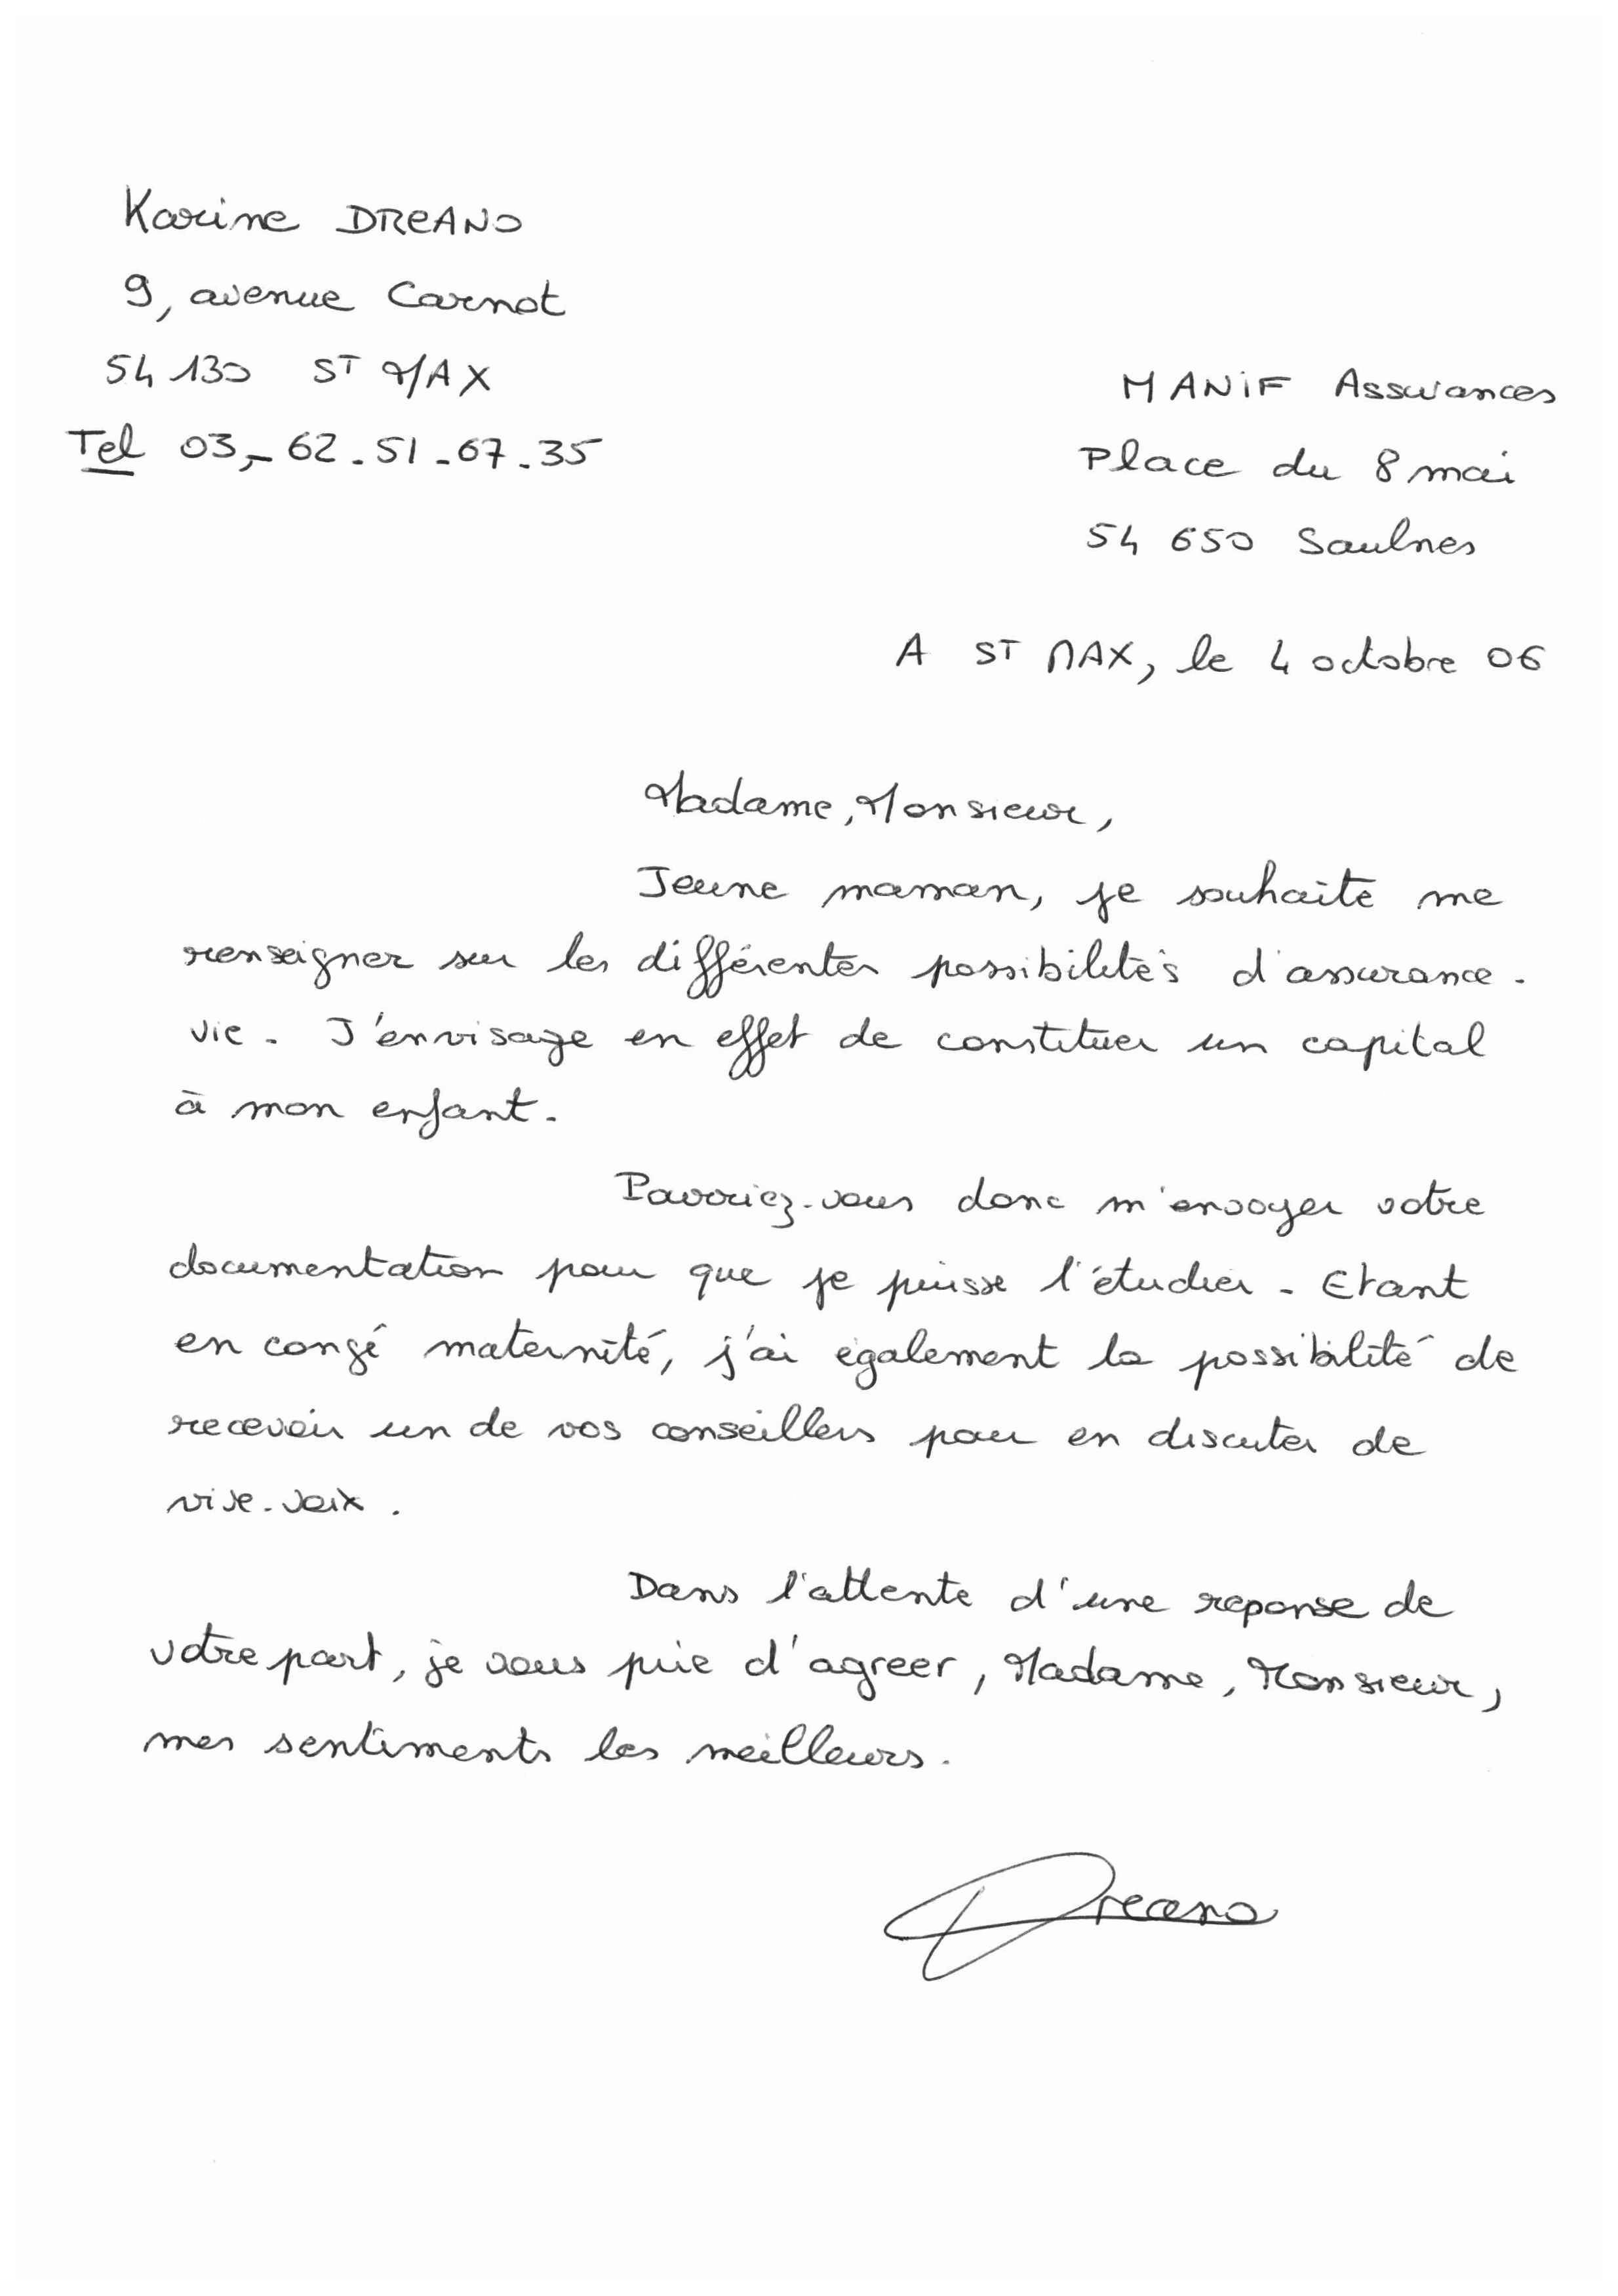 Karine DREANO
9, avenue Carnot
54 130 ST MAX
Tel 03.62.51.67.35
MANIF Assurances
Place du 8 mai
54 650 Saulnes
A ST MAX, le 4 octobre 06
Madame, Monsieur,
Jeune maman, je souhaite me
renseigner sur les différentes possibilités d'assurance-
vie. J'envisage en effet de constituer un capital
à mon enfant.
Pourriez-vous donc m'envoyer votre
documentation pour que je puisse l'étudier. Etant
en congé maternité, j'ai également la possibilité de
recevoir un de vos conseillers pour en discuter de
vive-voix.
Dans l'attente d'une reponse de
votre part, je vous prie d'agreer, Madame, Monsieur,
mes sentiments les meilleurs.
Dreano